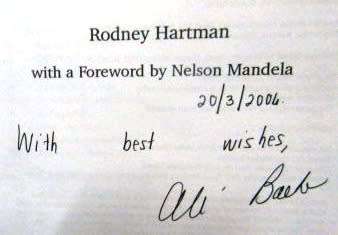 Rodney Hartman
with a Foreword by Nelson Mandela
20/3/2004.
With best wishes,
Ali